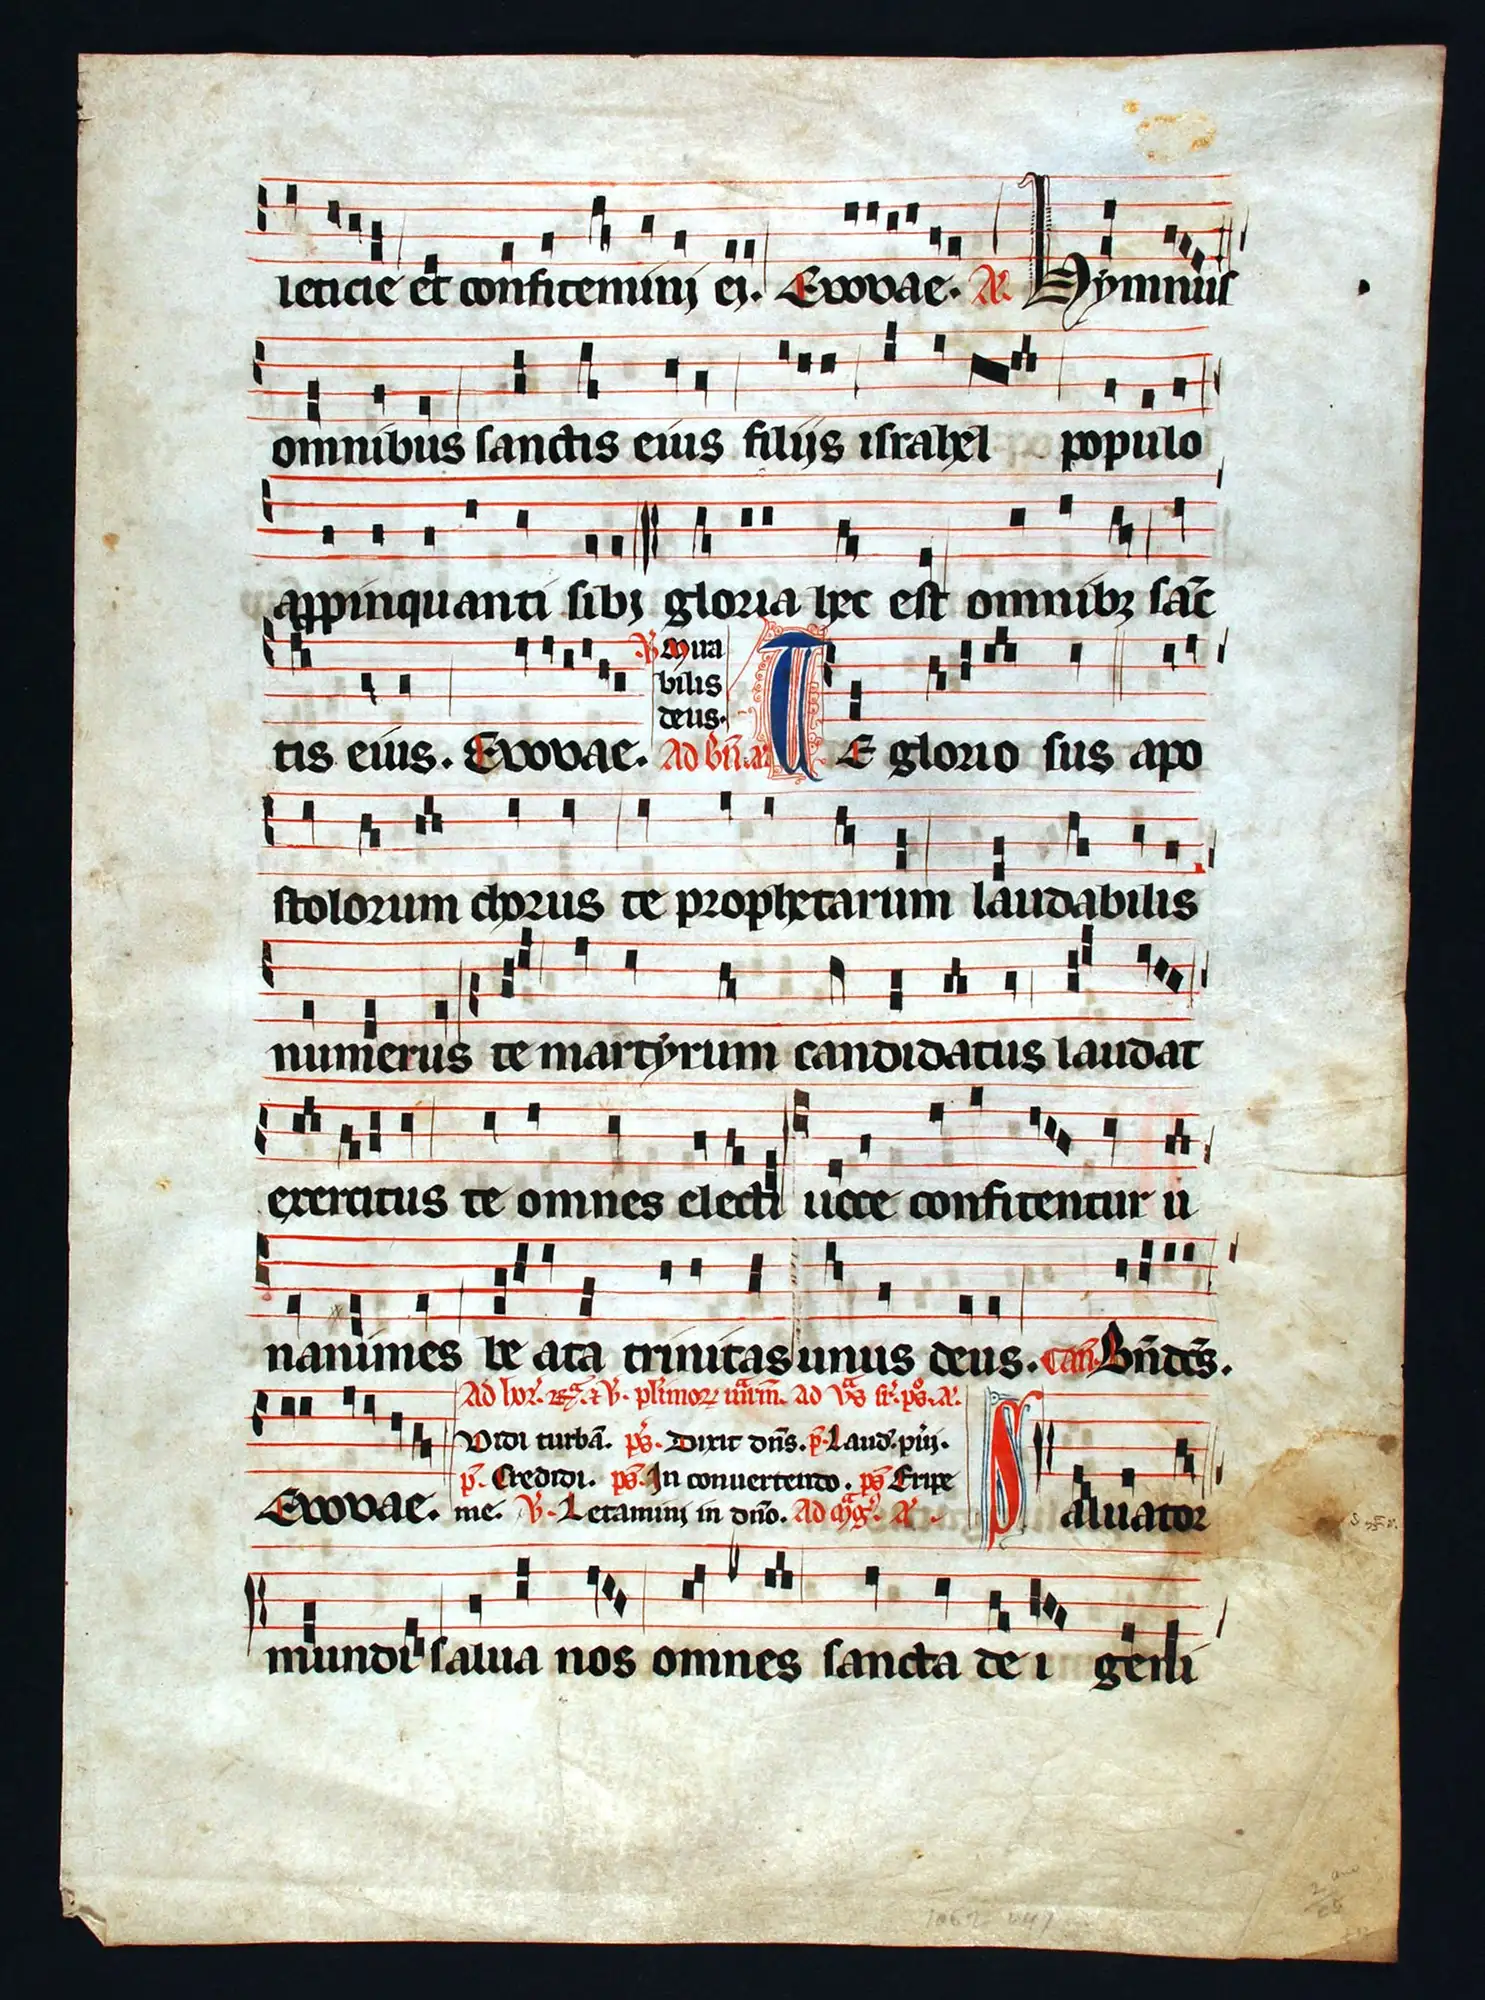 leticie et confitemini ei. Evovae. A. Hymnus
omnibus sanctis eius filijs israhel populo
appinquanti sibi gloria hec est omnibꝫ sāc
tis eius. Evovae.
V. Mira
bilis
deus.
Ad bn̄. a. TE glorio sus apo
stolorum chorus te prophetarum laudabilis
numerus te martyrum candidatus laudat
exercitus te omnes electi voce confitentur u
nanimes be ata trinitas unus deus. Can. Bn̄dcs̄.
Vidi turbā. ps. Dixit dn̄s. p. Laud. pūi.
p. Credidi. ps. In convertendo. ps Eripe
Evovae. me. V. Letamini in dn̄o. Ad mag. A. Saluator
mundi salua nos omnes sancta de i geni